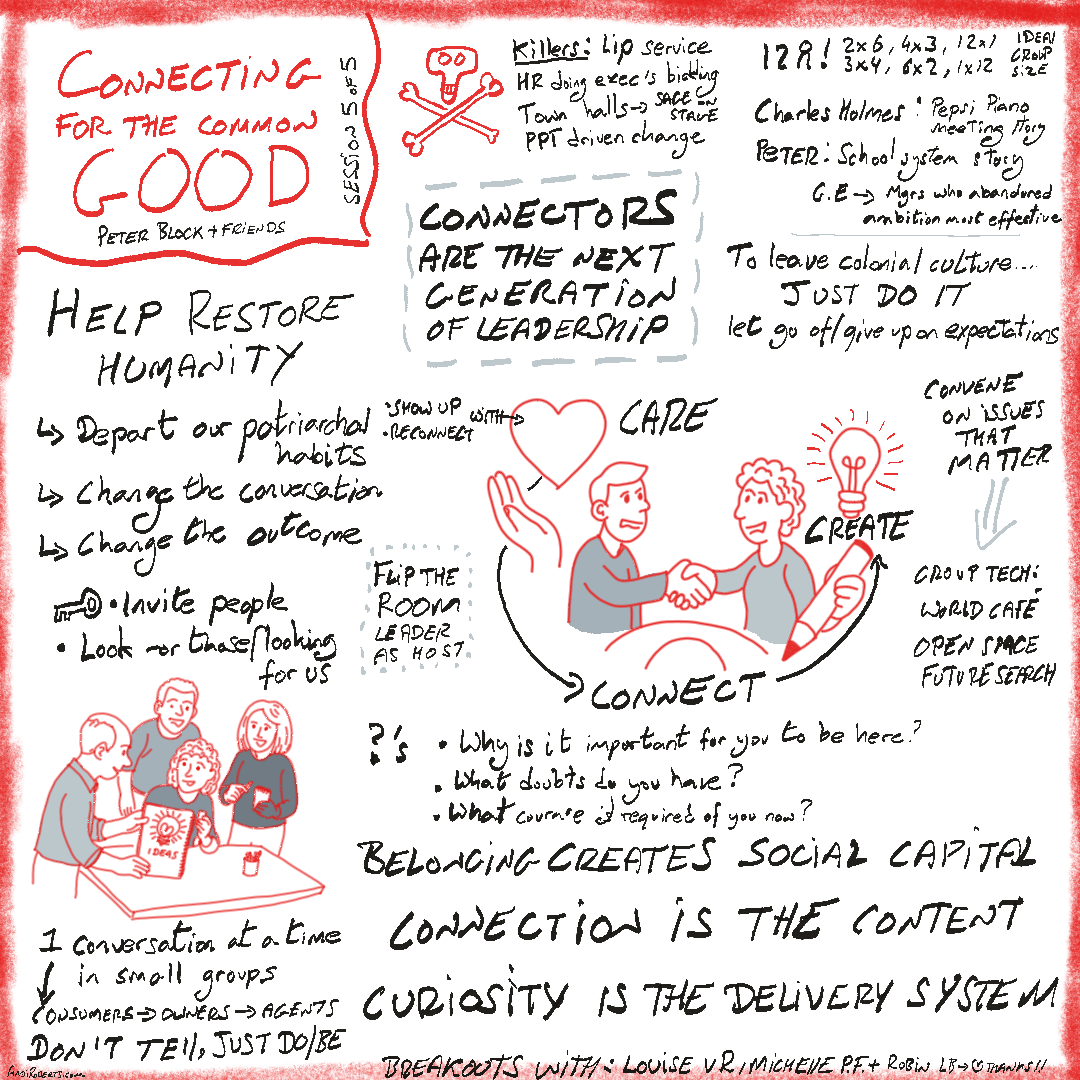 CONNECTING
FOR THE COMMON
GOOD
PETER BLOCK + FRIENDS
SESSION 5 OF 5
Killers: Lip service
HR doing exec's bidding
Town halls → SAGE ON
STAGE
PPT driven change
12 PL! 2x6, 4x3, 12x1
3x4, 6x2, 1x12
IDEAL
GROUP
SIZE
Charles Holmes: Pepsi Piano
meeting story
PETER: School system story
G.E → Mgrs who abandoned
ambition most effective
CONNECTORS
ARE THE NEXT
GENERATION
OF LEADERSHIP
To leave colonial culture....
JUST DO IT
let go off/give up on expectations
HELP RESTORE
HUMANITY
↳ Depart our patriarchal
habits
↳ Change the conversation
↳ Change the outcome
• Invite people
• Look for those/looking
for us
• SHOW UP WITH →
• RECONNECT
CARE
CREATE
CONNECT
CONVENE
ON ISSUES
THAT
MATTER
GROUP TECH:
WORLD CAFÉ
OPEN SPACE
FUTURE SEARCH
FLIP THE
ROOM
LEADER
AS HOST
?'s
• Why is it important for you to be here?
• What doubts do you have?
• What courage is required of you now?
IDEAS
BELONGING CREATES SOCIAL CAPITAL
CONNECTION IS THE CONTENT
CURIOSITY IS THE DELIVERY SYSTEM
1 conversation at a time
in small groups
CONSUMERS → OWNERS → AGENTS
DON'T TELL, JUST DO/BE
BREAKOUTS WITH: LOUISE VR, MICHELLE P.F. + ROBIN LB → ♡ THANKS!!
ANDIROBERTS.COM